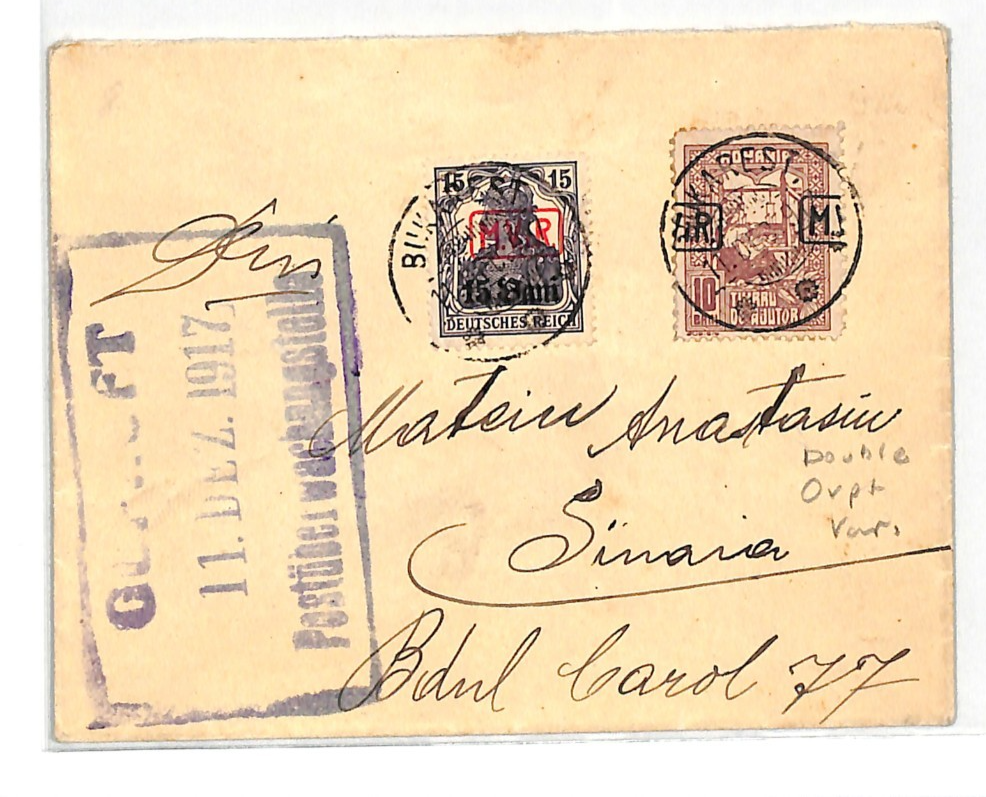 15 15
M.V.i.R.
15 Bani
DEUTSCHES REICH
BUKAREST
ROMANIA
10
BANI
TIMBRU
DE AJUTOR
BUKAREST
11. DEZ. 1917
Postüberwachungstelle
Mateiu Anastasiu
Sinaia
Bdul Carol 77
Double
Ovpt
Var.